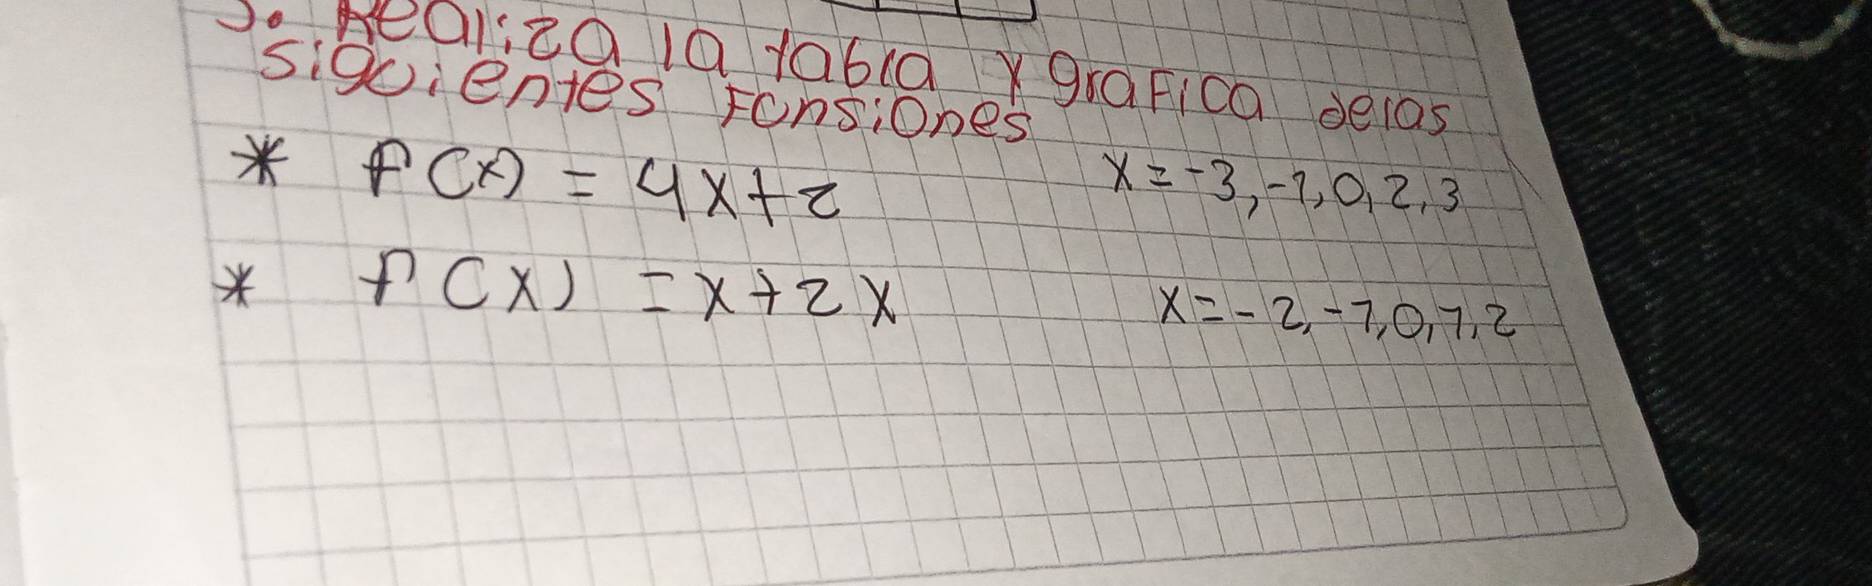 3. Realiza la tabla y grafica delas
siguientes Funsiones
* f(x) = 4x+2 x=-3,-1,0,2,3
* f(x) = x+2x x=-2,-1,0,1,2